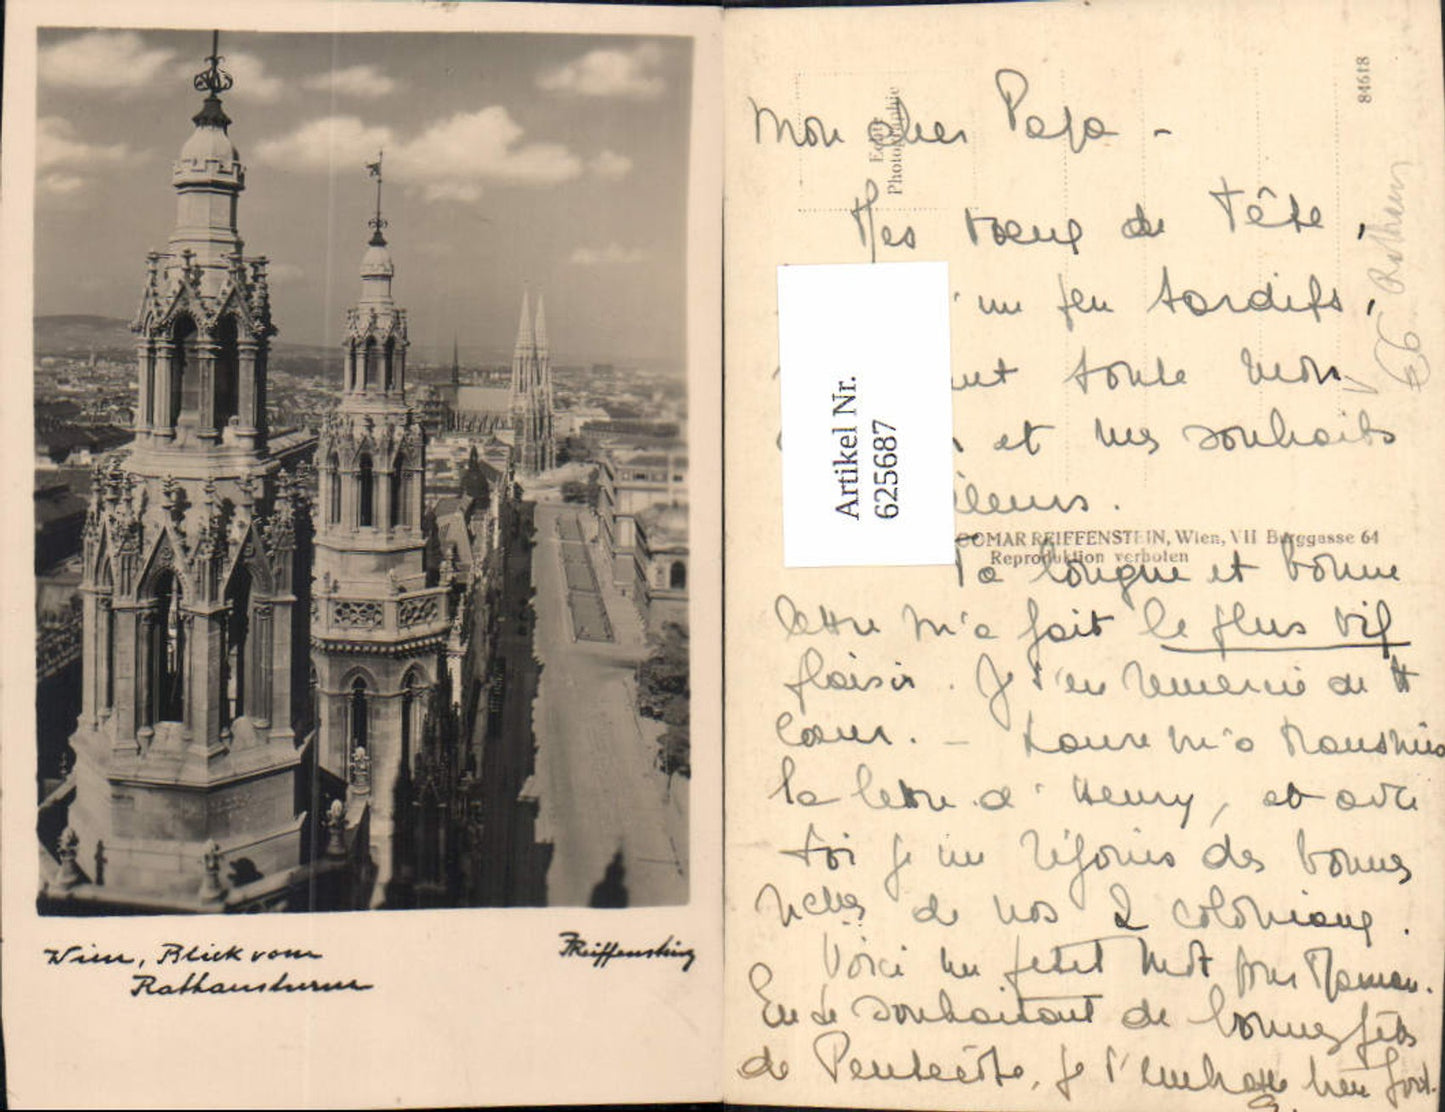 Wien, Blick vom
Rathausturm
Reiffenstein
84618
Echte
Photographie
Mon cher Papa -
Mes vœux de fête,
un peu tardifs,
toute mon
et mes souhaits
illeurs.
Artikel Nr.
625687
COMAR REIFFENSTEIN, Wien, VII Burggasse 64
Reproduktion verboten
Ta longue et bonne
lettre m'a fait le plus vif
plaisir. Je t'en remercie de tt
cœur. - Laure m'a transmis
la lettre d'Henry, et avec
toi je me réjouis des bonnes
de nos 2 coloniaux.
Voici un petit mot pour Maman.
En te souhaitant de bonnes fêtes
de Pentecôte, je t'embrasse bien fort.
Rathaus